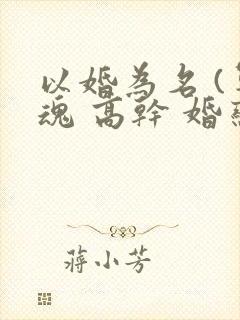 以婚為名 (
魂 高幹 婚
蔣小芳